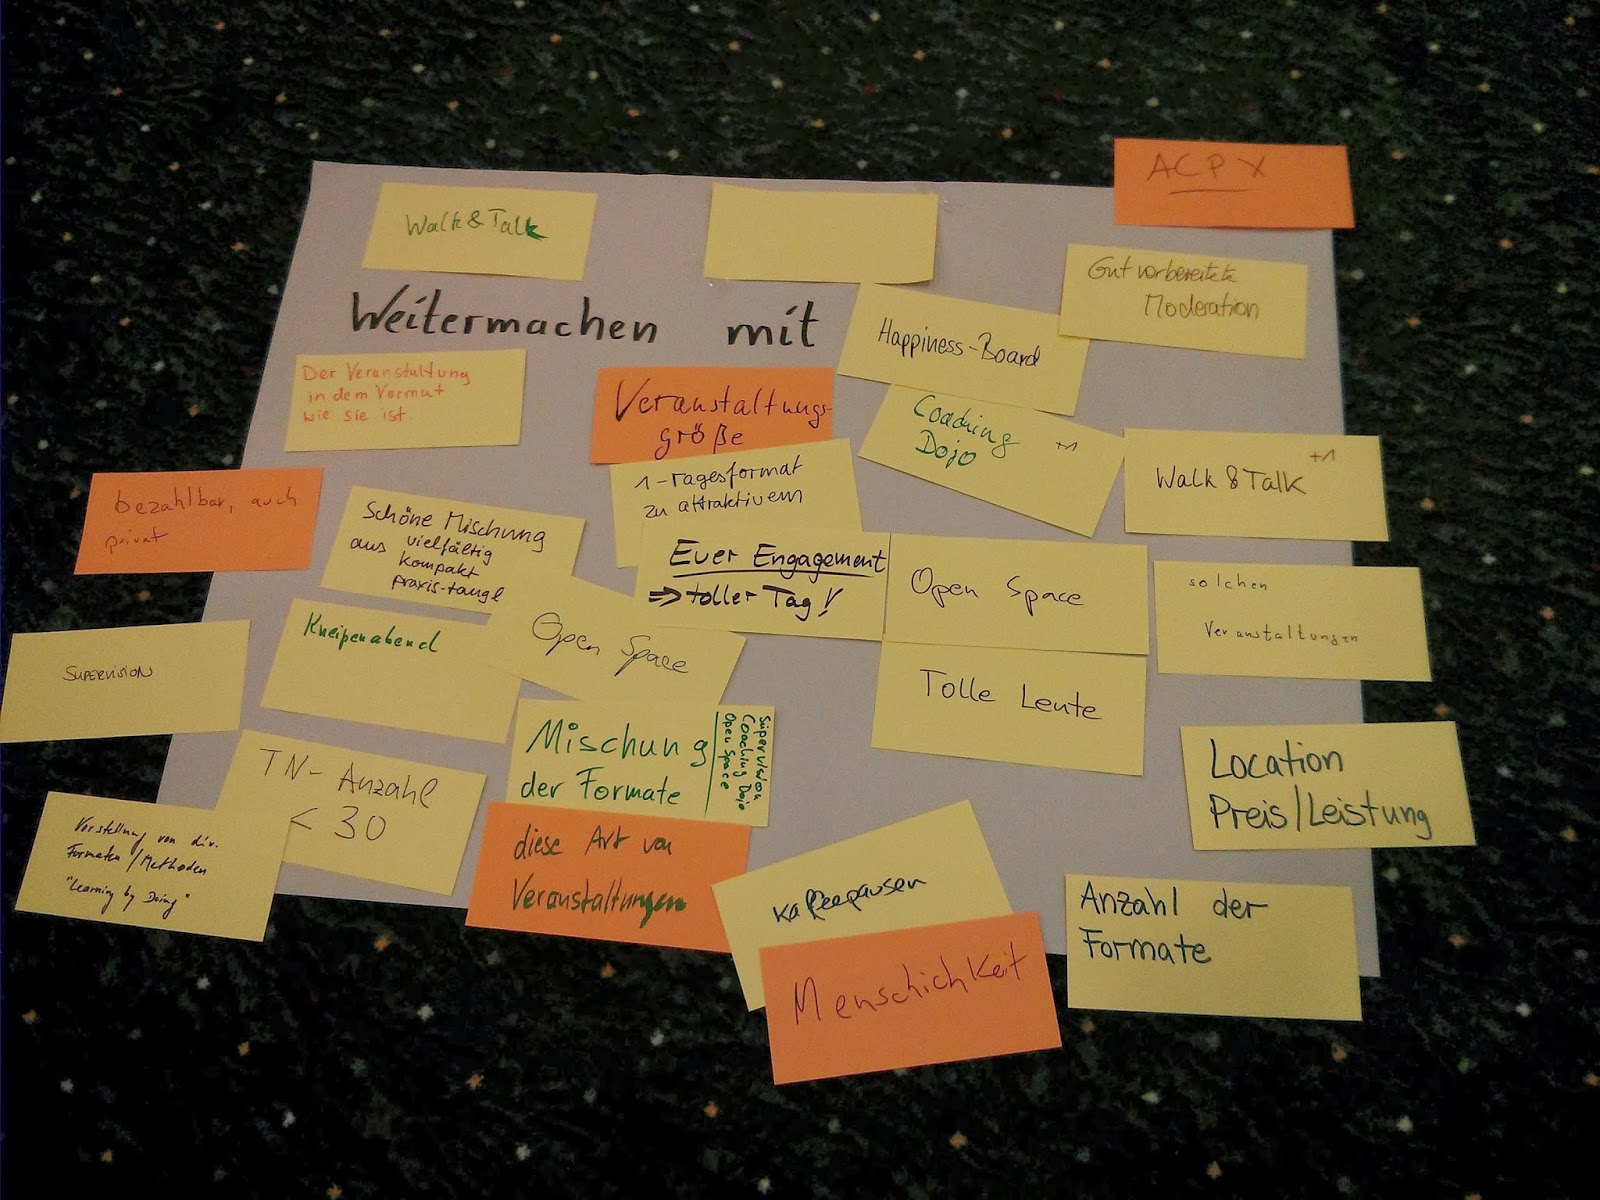 ACP X
Walk & Talk
Gut vorbereitete
Moderation
Weitermachen mit
Happiness-Board
Der Veranstaltung
in dem Vormat
wie sie ist.
Veranstaltungs-
größe
Coaching
Dojo +1
Walk & Talk +1
1-Tagesformat
zu attraktivem
bezahlbar, auch
privat
Schöne Mischung
aus vielfältig
kompakt
praxis-taugl
Euer Engagement
=> toller Tag!
Open Space
solchen
Veranstaltungen
Kneipenabend
Open Space
SUPERVISION
Tolle Leute
Mischung
der Formate
Supervision
Coaching Dojo
Open Space
Location
Preis/Leistung
TN-Anzahl
< 30
Vorstellung von div.
Formaten/Methoden
"Learning by Doing"
diese Art von
Veranstaltungen
Kaffeepausen
Anzahl der
Formate
Menschichkeit